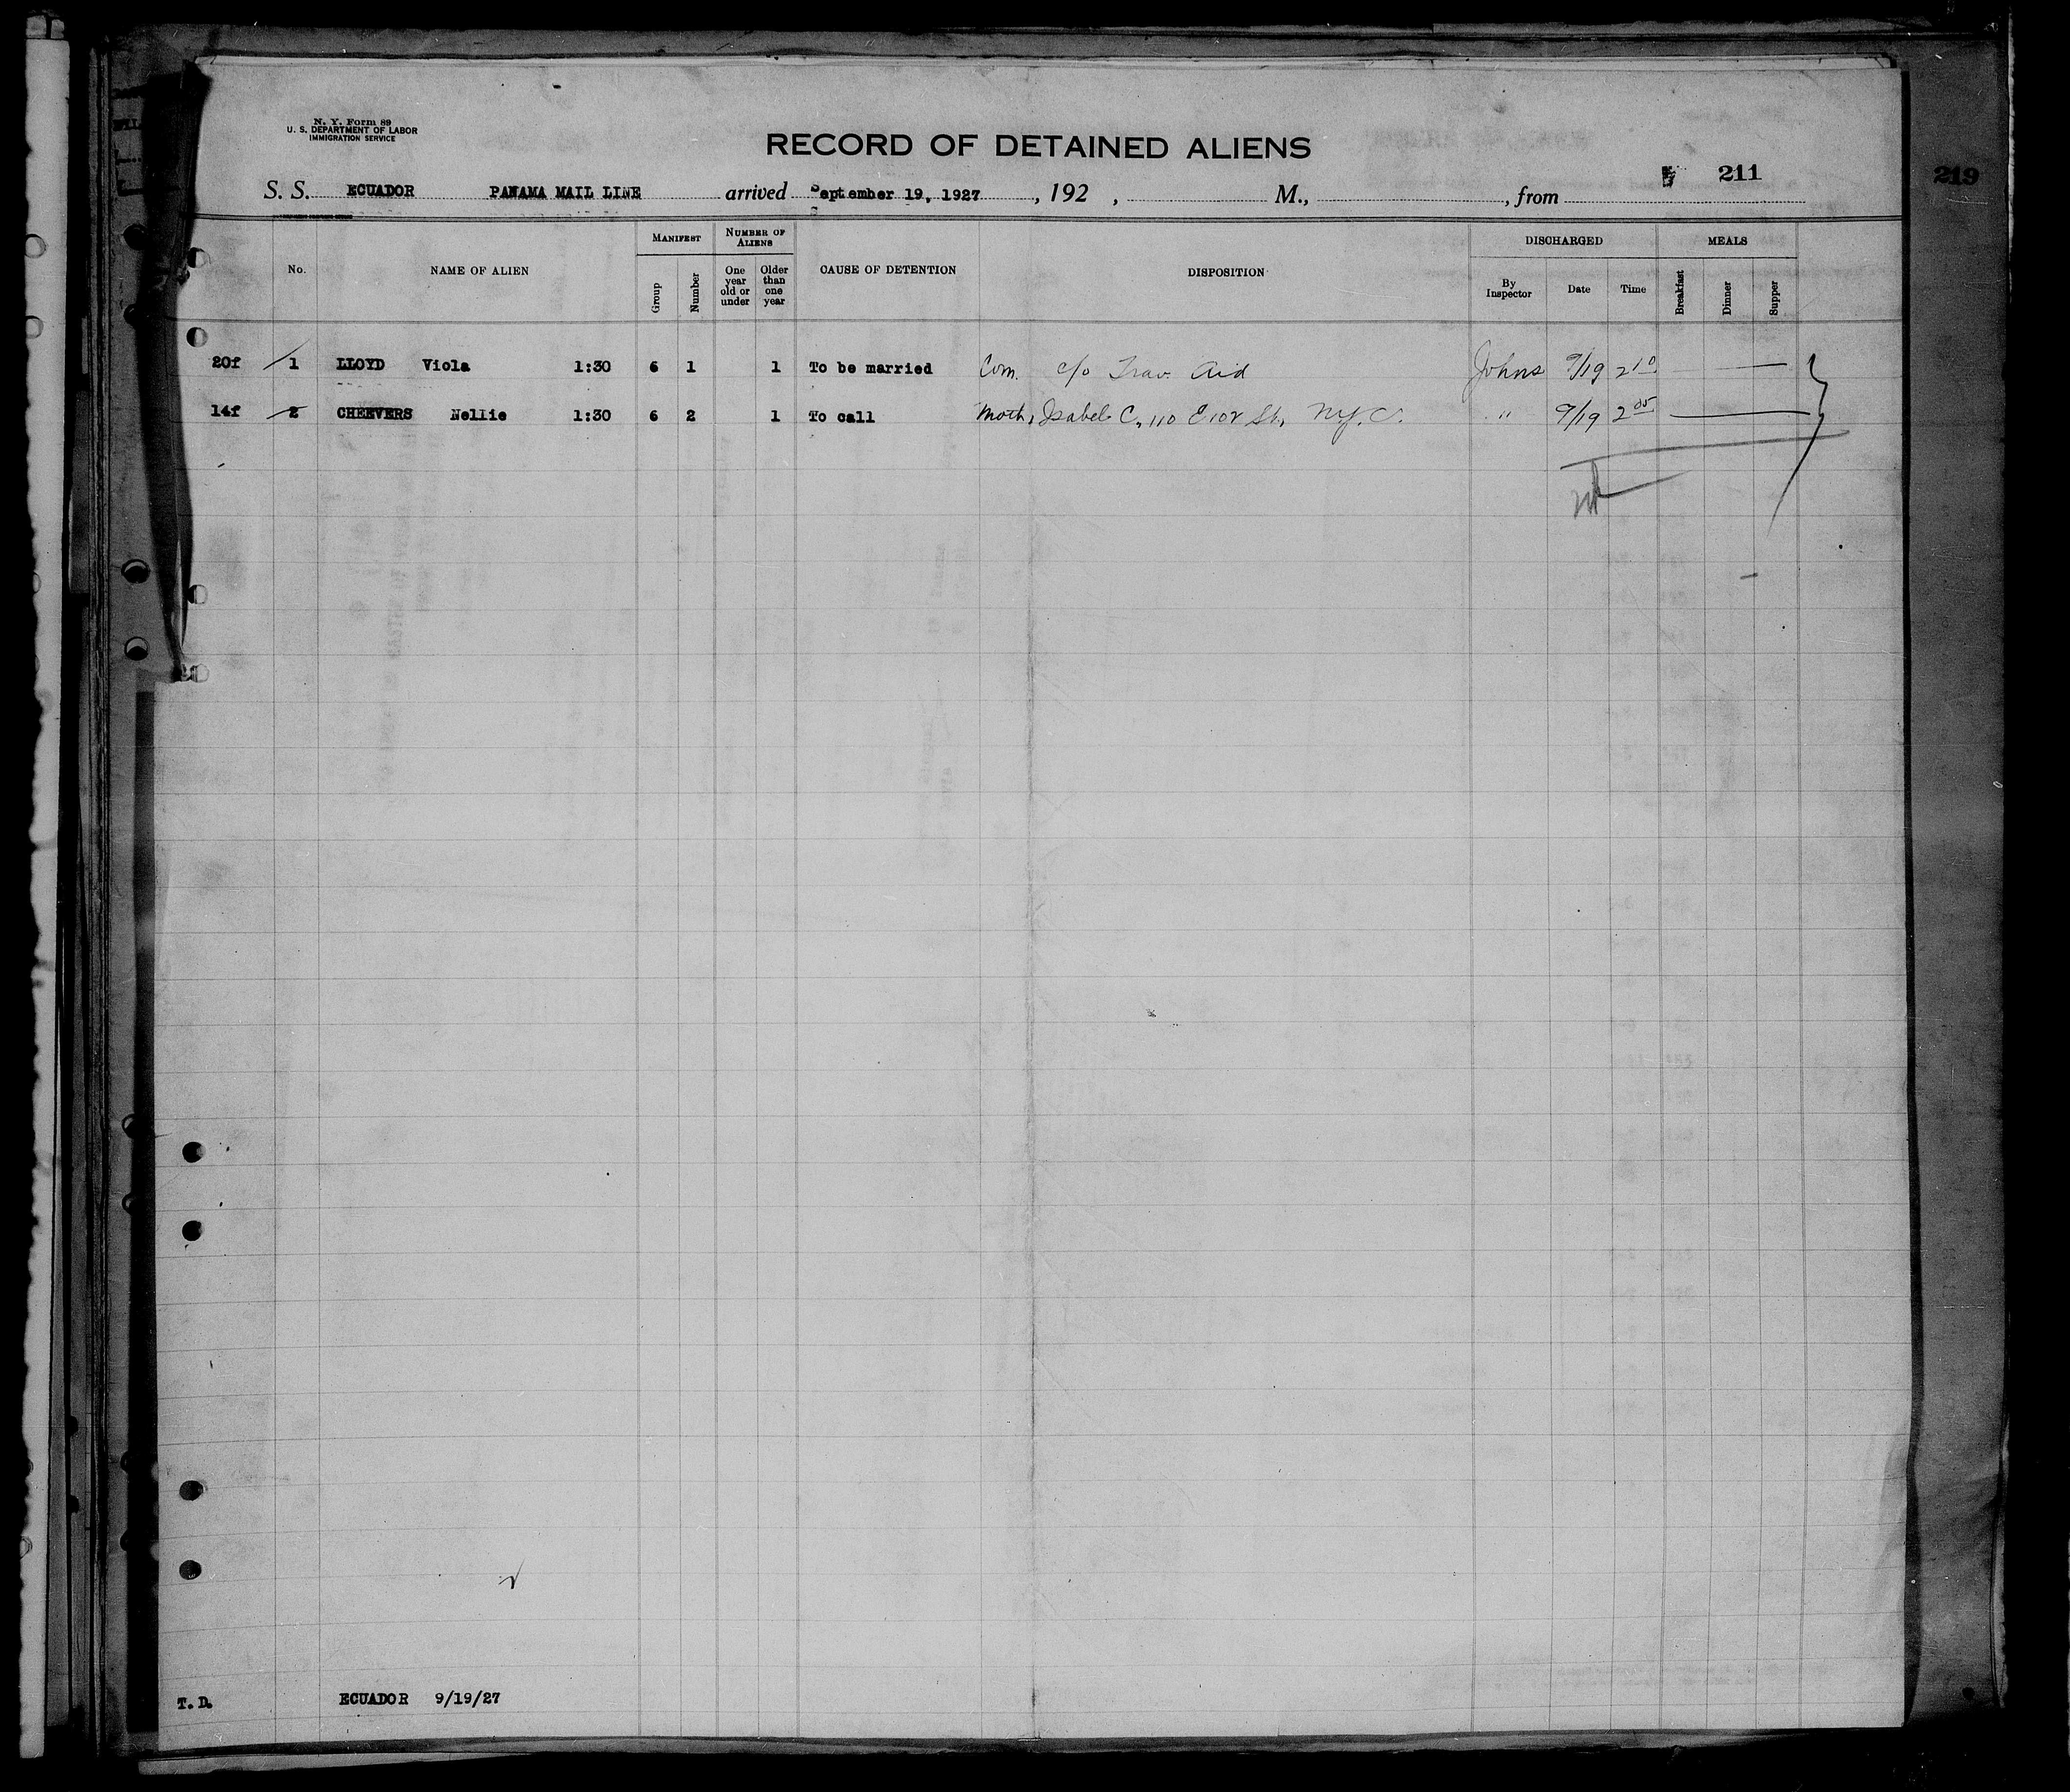 N. Y. Form 89
U. S. DEPARTMENT OF LABOR
IMMIGRATION SERVICE
RECORD OF DETAINED ALIENS
211
219
S. S. ECUADOR PANAMA MAIL LINE arrived September 19, 1927, 192 , M., , from
No. NAME OF ALIEN MANIFEST Group Number NUMBER OF ALIENS One year old or under Older than one year CAUSE OF DETENTION DISPOSITION DISCHARGED By Inspector Date Time MEALS Breakfast Dinner Supper
20f 1 LLOYD Viola 1:30 6 1 1 To be married Com. c/o Trav. Aid Johns 9/19 2 10
14f 2 CHEEVERS Nellie 1:30 6 2 1 To call Moth, Isabel C, 110 E 102 St, N.Y.C. " 9/19 2 05
T. D. ECUADOR 9/19/27